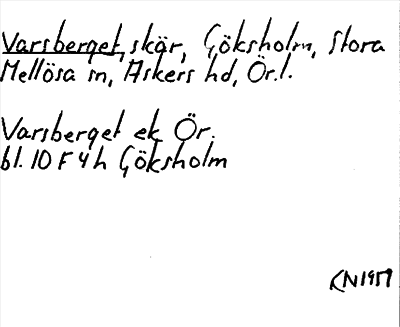 Varsberget, skär, Göksholm, Stora
Mellösa sn, Askers hd, Ör.l.
Varsberget ek Ör.
bl. 10 F 4 h Göksholm